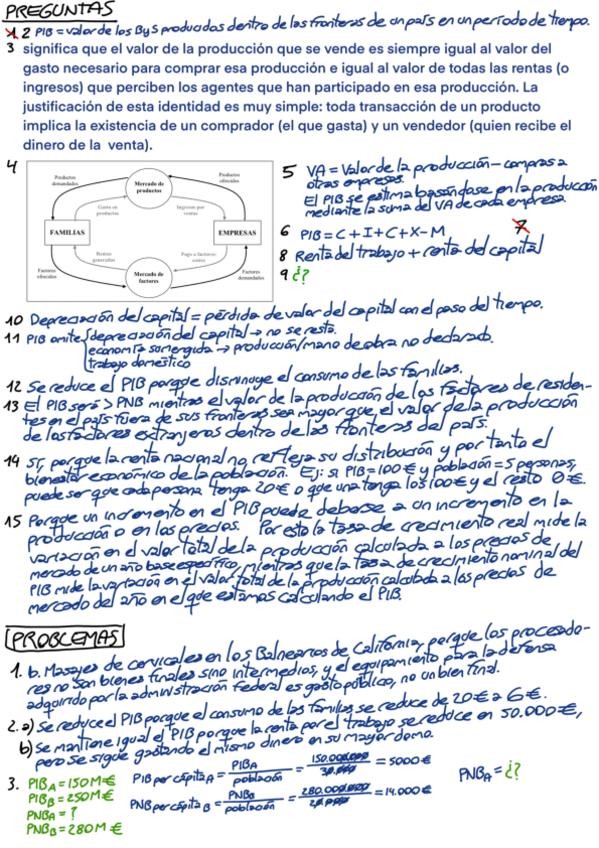 PREGUNTAS
1 2 PIB = valor de los ByS producidos dentro de las fronteras de un país en un período de tiempo.
3 significa que el valor de la producción que se vende es siempre igual al valor del
gasto necesario para comprar esa producción e igual al valor de todas las rentas (o
ingresos) que perciben los agentes que han participado en esa producción. La
justificación de esta identidad es muy simple: toda transacción de un producto
implica la existencia de un comprador (el que gasta) y un vendedor (quien recibe el
dinero de la venta).
4
Productos demandados
Mercado de productos
Productos ofrecidos
Gasto en productos
Ingresos por ventas
FAMILIAS
EMPRESAS
Rentas generadas
Pago a factores: costes
Factores ofrecidos
Mercado de factores
Factores demandados
5 VA = Valor de la producción - compras a
otras empresas.
El PIB se estima basándose en la producción
mediante la suma del VA de cada empresa.
6 PIB = C + I + C + X - M
7
8 Renta del trabajo + renta del capital
9 ¿?
10 Depreciación del capital = pérdida de valor del capital con el paso del tiempo.
11 PIB omite { depreciación del capital → no se resta.
economía sumergida → producción/mano de obra no declarado.
trabajo doméstico
12 Se reduce el PIB porque disminuye el consumo de las familias.
13 El PIB será > PNB mientras el valor de la producción de los factores de residen-
tes en el país fuera de sus fronteras sea mayor que el valor de la producción
de los factores extranjeros dentro de las fronteras del país.
14 Sí, porque la renta nacional no refleja su distribución y por tanto el
bienestar económico de la población. Ej: si PIB = 100€ y población = 5 personas,
puede ser que cada persona tenga 20€ o que una tenga los 100€ y el resto 0€.
15 Porque un incremento en el PIB puede deberse a un incremento en la
producción o en los precios. Por esto la tasa de crecimiento real mide la
variación en el valor total de la producción calculada a los precios de
mercado de un año base específico, mientras que la tasa de crecimiento nominal del
PIB mide la variación en el valor total de la producción calculada a los precios de
mercado del año en el que estamos calculando el PIB.
PROBLEMAS
1. b. Masajes de cervicales en los Balnearios de California, porque los procesado-
res no son bienes finales sino intermedios, y el equipamiento para la defensa
adquirido por la administración federal es gasto público, no un bien final.
2. a) Se reduce el PIB porque el consumo de las familias se reduce de 20€ a 6€.
b) Se mantiene igual el PIB porque la renta por el trabajo se reduce en 50.000€,
pero se sigue gastando el mismo dinero en su mayordomo.
3. PIBA = 150M€
PIBB = 250M€
PNBA = ?
PNBB = 280M€
PIB per cápita A = PIBA / población = 150.000.000 / 30.000 = 5000€
PNB per cápita B = PNBB / población = 280.000.000 / 20.000 = 14.000€
PNBA = ¿?